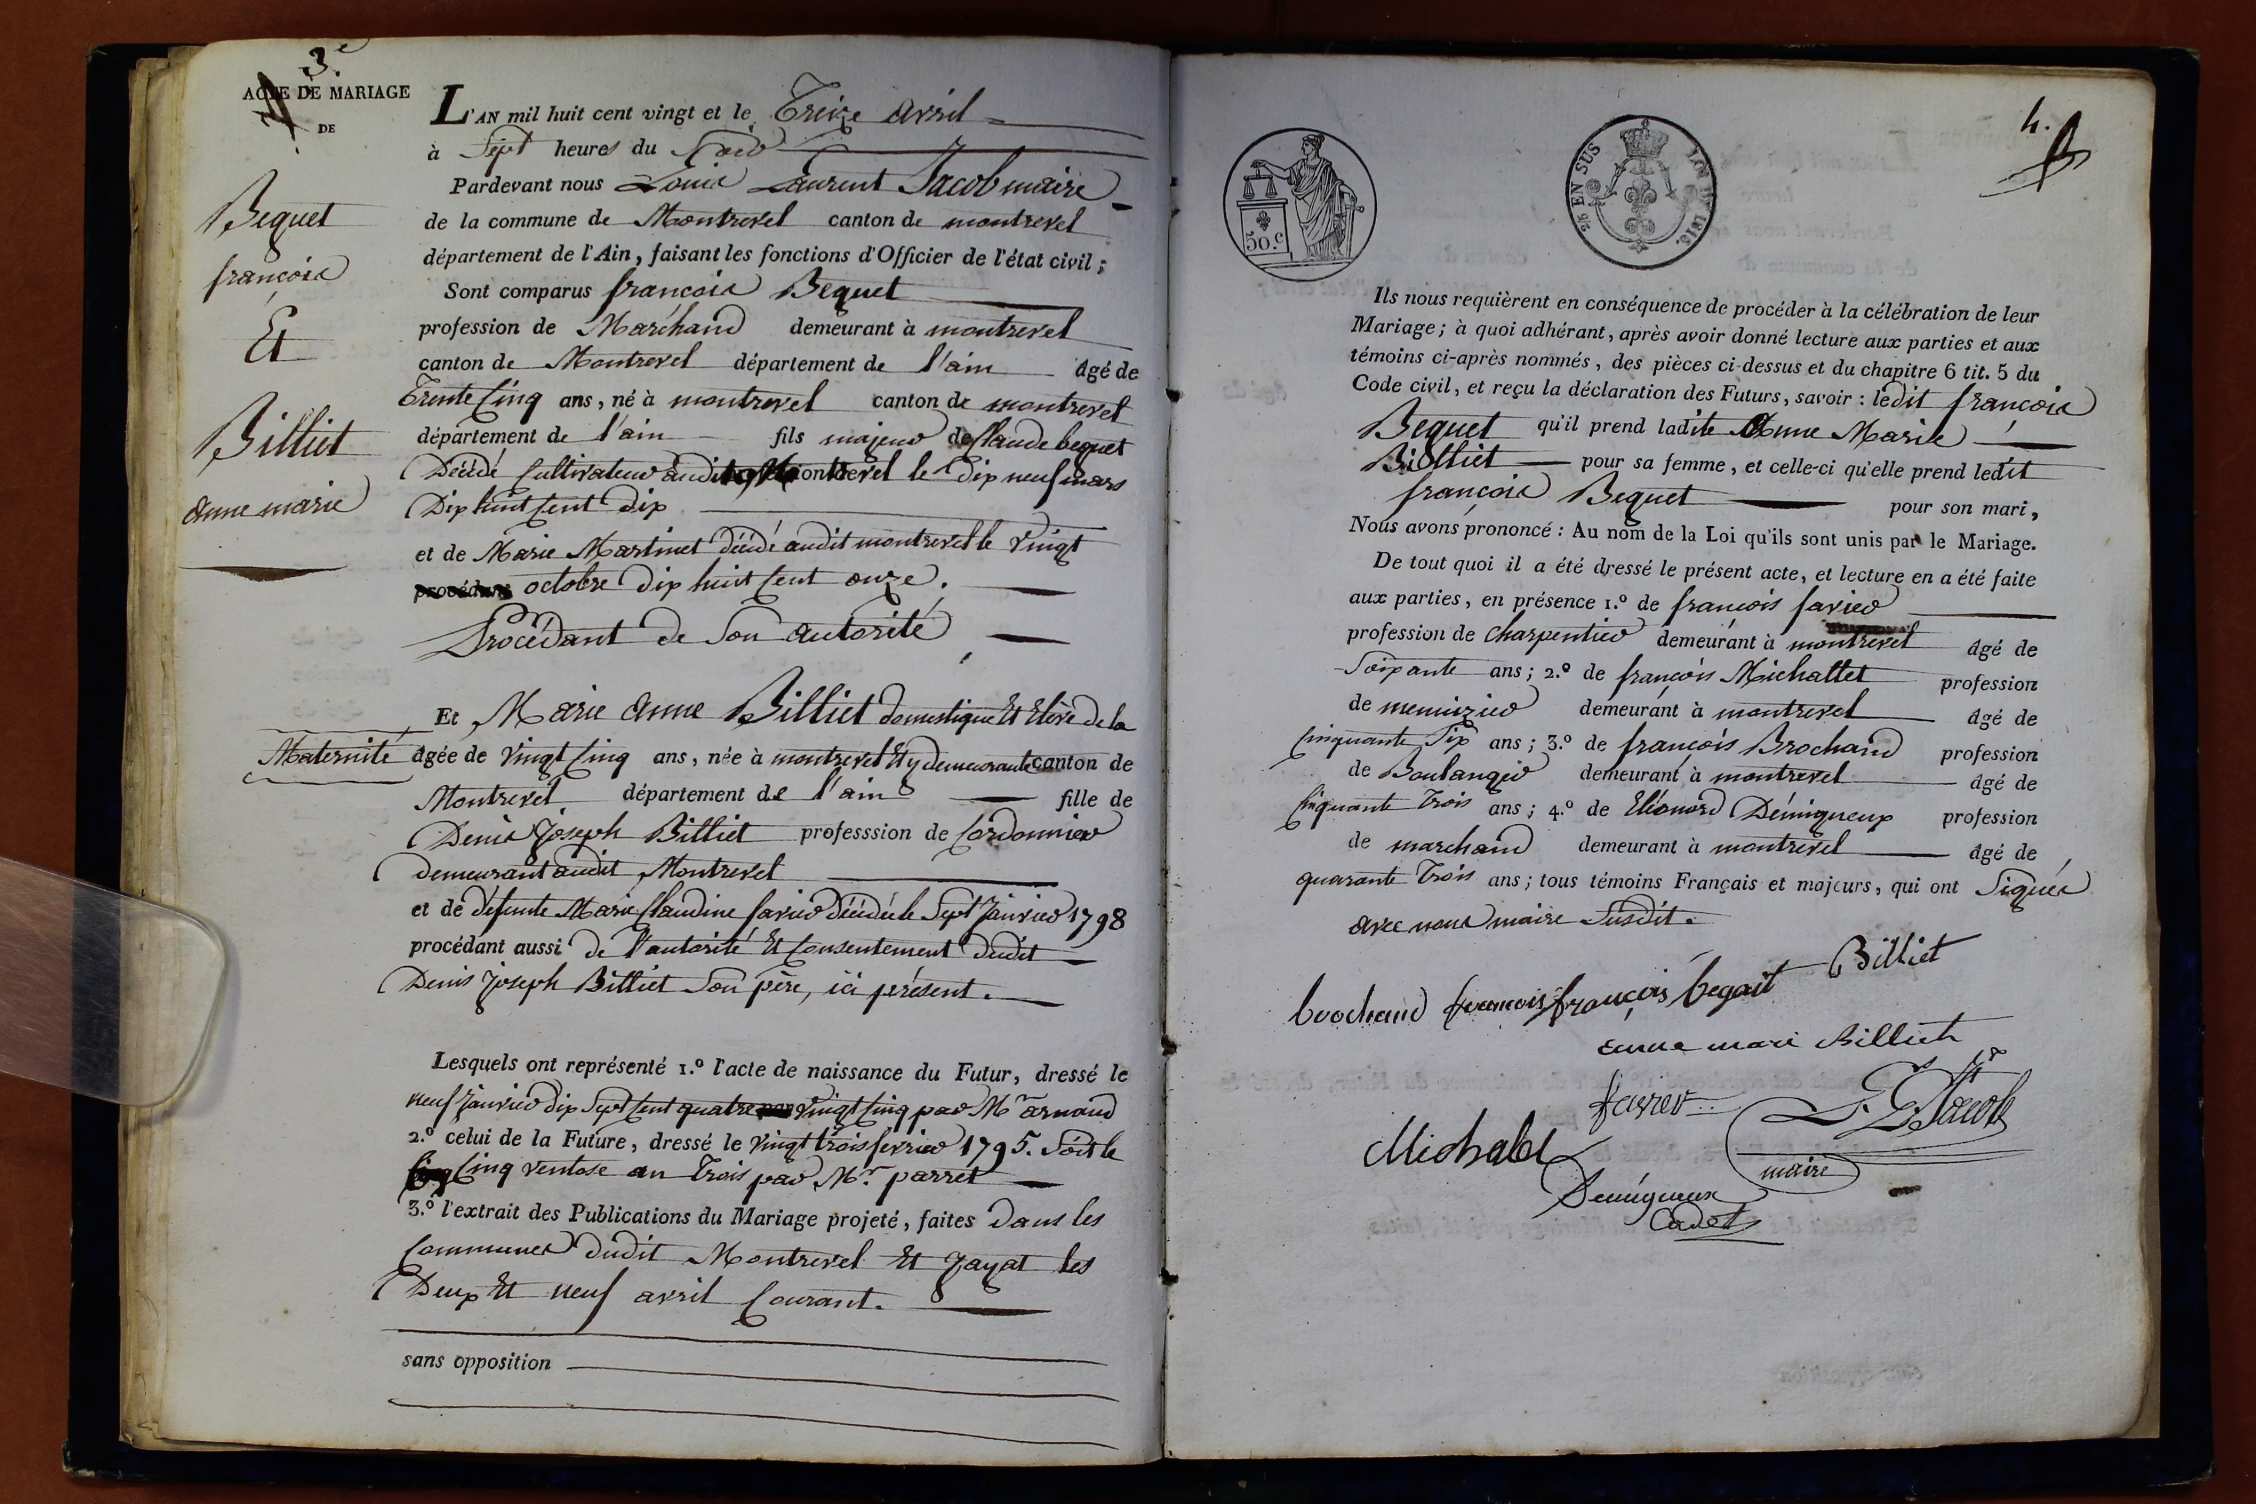 3.e
ACTE DE MARIAGE
DE
Bequet
françois
Et
Billiet
anne marie
L'AN mil huit cent vingt et le Treize avril
à Sept heures du Soir
Pardevant nous Louis Laurent Jacob maire
de la commune de Montrevel canton de montrevel
département de l'Ain, faisant les fonctions d'Officier de l'état civil;
Sont comparus françois Bequet
profession de Marchand demeurant à montrevel
canton de Montrevel département de l'ain âgé de
Trente Cinq ans, né à montrevel canton de montrevel
département de l'ain fils majeur de Claude bequet
Décédé Cultivateur audit Montrevel le Dix neuf mars
Dix huit Cent Dix
et de Marie Martinet décédé audit montrevel le vingt
procédant octobre Dix huit Cent onze.
Procédant de Son autorité
Et Marie anne Billiet domestique Et Elève de la
Maternité âgée de vingt Cinq ans, née à montrevel Et y demeurante canton de
Montrevel département de l'ain fille de
Denis Joseph Billiet professsion de Cordonnier
demeurant audit Montrevel
et de défunte Marie Claudine favier décédée le Sept Janvier 1798
procédant aussi de l'autorité Et Consentement dudit
Denis Joseph Billiet Son père, ici présent.
Lesquels ont représenté 1.º l'acte de naissance du Futur, dressé le
neuf Janvier dix Sept Cent quatre vingt Cinq par Mr arnaud
2.º celui de la Future, dressé le vingt trois fevrier 1795. Soit le
Cinq ventose an Trois par Mr. parret
3.º l'extrait des Publications du Mariage projeté, faites Dans les
Communes dudit Montrevel Et Jayat les
Deux Et neuf avril Courant.
sans opposition
4.
50.c
2/5 EN SUS
LOI DE 1816.
Ils nous requièrent en conséquence de procéder à la célébration de leur
Mariage; à quoi adhérant, après avoir donné lecture aux parties et aux
témoins ci-après nommés, des pièces ci-dessus et du chapitre 6 tit. 5 du
Code civil, et reçu la déclaration des Futurs, savoir : ledit françois
Bequet qu'il prend ladite Anne Marie
Billiet pour sa femme, et celle-ci qu'elle prend ledit
françois Bequet pour son mari,
Nous avons prononcé : Au nom de la Loi qu'ils sont unis par le Mariage.
De tout quoi il a été dressé le présent acte, et lecture en a été faite
aux parties, en présence 1.º de françois favier
profession de Charpentier demeurant à montrevel âgé de
Soixante ans; 2.º de françois Michallet profession
de menuizier demeurant à montrevel âgé de
Cinquante Six ans; 3.º de françois Brochand profession
de Boulanger demeurant à montrevel âgé de
Cinquante Trois ans; 4.º de Eléonord Démiqueux profession
de marchand demeurant à montrevel âgé de
quarante Trois ans; tous témoins Français et majeurs, qui ont Signés
avec nous maire Susdit.
brochand francois françois begait Billiet
anne mari Billiet
favier
L. L. Jacob
Michalet
maire
Demiqueux
Cadet